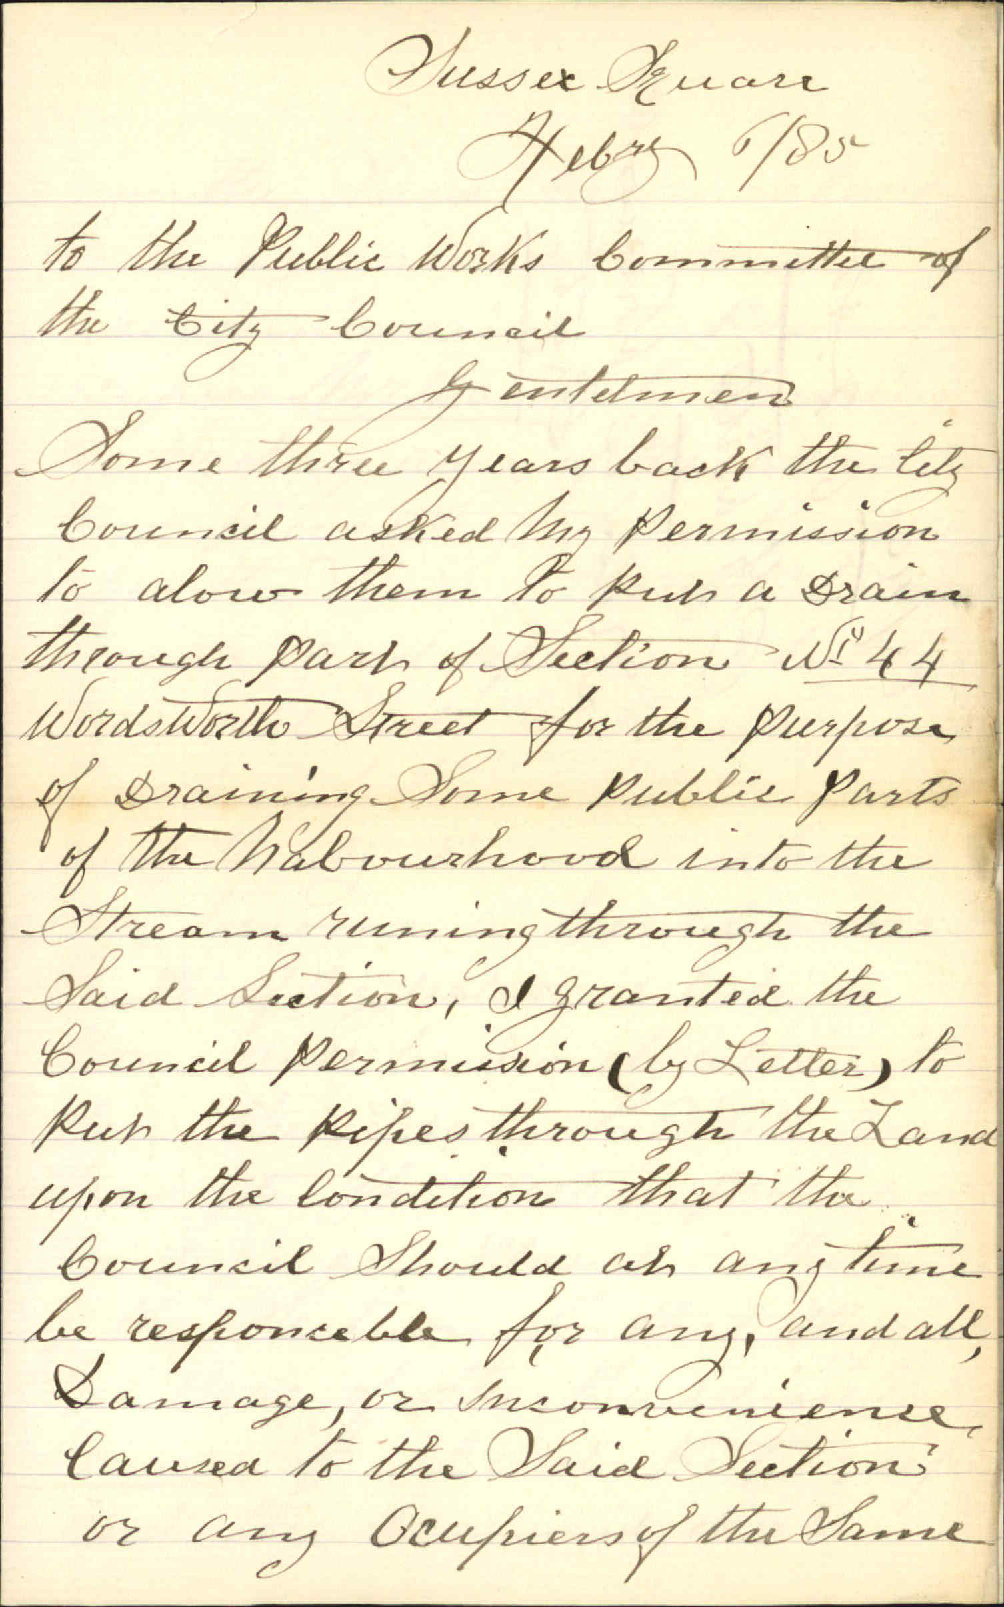 Sussex Square
Febry 6/85
to the Public Works Committee of
the City Council
Gentelmen
Some three years back the City
Council asked My Permission
to alow them to Put a Drain
through Part of Section No 44
WordsWorth Street for the Purpose
of Draining Some Public Parts
of the Nabourhood into the
Stream runing through the
Said Section, I granted the
Council Permission (by Letter) to
Put the Pipes through the Land
upon the Condition that the
Council Should at any time
be responceble for any, and all,
Damage, or Inconvenience,
Caused to the Said Section
or any Ocupiers of the Same